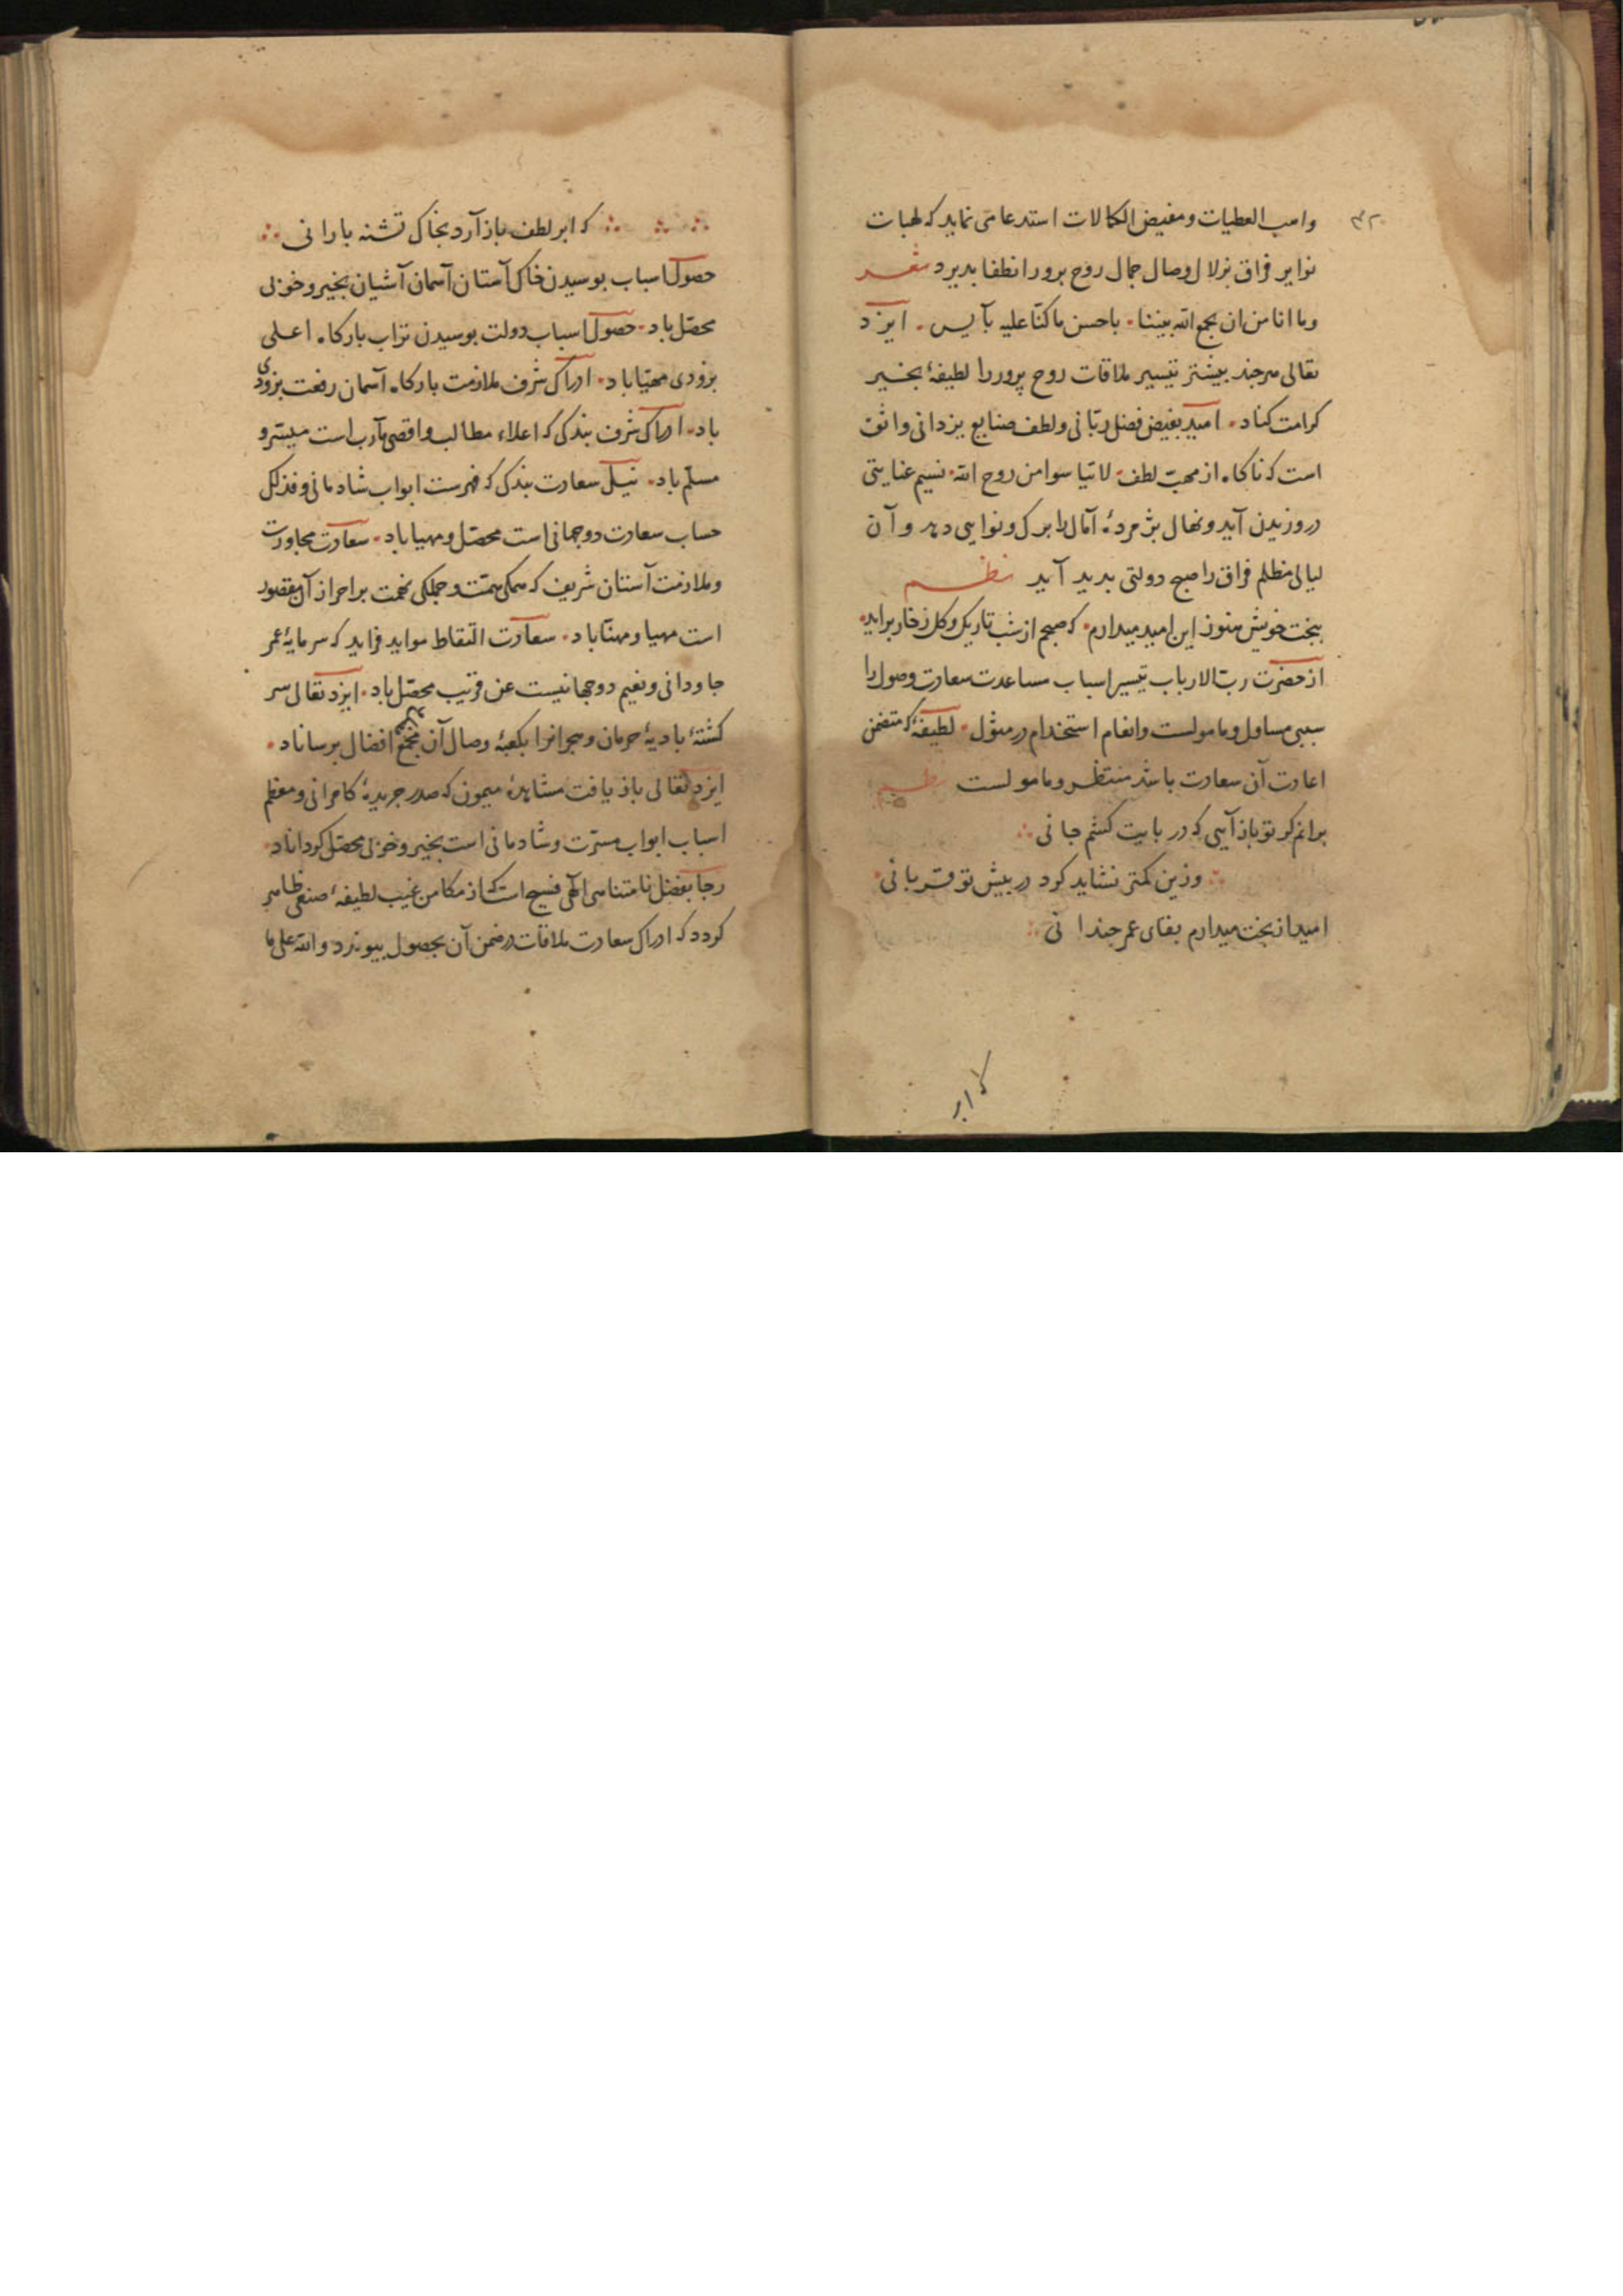 واهب العطیات و مفیض الکمالات استدعا می نماید که لهبات
نوایر فراق بزلال وصال جمال روح پرور انطفا پدیرد شعر
وما انا من ان یجمع الله بیننا باحسن ما کنا علیه بآیس ایزد
تعالی هر چند بیشتر تیسیر ملاقات روح پرور را لطیفهٔ بخیر
کرامت کناد امید بفیض فضل ربّانی و لطف صنایع یزدانی واثق
است که ناکاه از مهبّ لطف لا تیأسوا من روح الله نسیم عنایتی
در وزیدن آید و نهال پژمردهٔ آمال را برک و نوایی دهد و آن
لیالی مظلم فراق را صبح دولتی بدید آید نظم
ببخت خویش هنوز این امید میدارم که صبحم از شب تاریک و کل ز خار براید
از حضرت ربّ الارباب تیسیر اسباب مساعدت سعادت وصول را
سببی مساول و مامولست وانعام استخدام در مثول لطیفهٔ که متضمن
اعادت آن سعادت باشد منتظر و مامولست نظم
برانم کر تو باز آیی که در پایت کشم جانی
وزین کمتر نشاید کرد در پیش تو قربانی
امید از بخت میدارم بقای عمر چندانی
که ابر
که ابر لطف باز آرد بخاک تشنه بارانی
حصول اسباب بوسیدن خاک آستان آسمان آشیان بخیر و خوبی
محصّل باد حصول اسباب دولت بوسیدن تراب بارکاه اعلی
بزودی مهیّا باد ادراک شرف ملازمت بارکاه آسمان رفعت بزودی
باد ادراک شرف بندکی که اعلاء مطالب و اقصی مآرب است میسّر و
مسلّم باد نیل سعادت بندکی که فهرست ابواب شادمانی و فذلک
حساب سعادت دوجهانی است محصّل و مهیا باد سعادت مجاورت
و ملازمت آستان شریف که همکی همّت و جملکی نهمت بر احراز آن مقصور
است مهیا و مهنّا باد سعادت التقاط مواید فراید که سرمایهٔ عمر
جاودانی و نعیم دوجهانیست عن قریب محصّل باد ایزد تعالی سر
کشتهٔ بادیهٔ حرمان و هجرانرا بکعبهٔ وصال آن مجمع افضال برساناد
ایزد تعالی باز یافت مشاهدهٔ میمون که صدر جریدهٔ کامرانی و معظم
اسباب ابواب مسرّت و شادمانی است بخیر و خوبی محصّل کرداناد
رجا بفضل نامتناهی الهی فسیح است که از مکامن غیب لطیفهٔ صنعی ظاهر
کردد که ادراک سعادت ملاقات در ضمن آن بحصول پیوندد والله علی ما